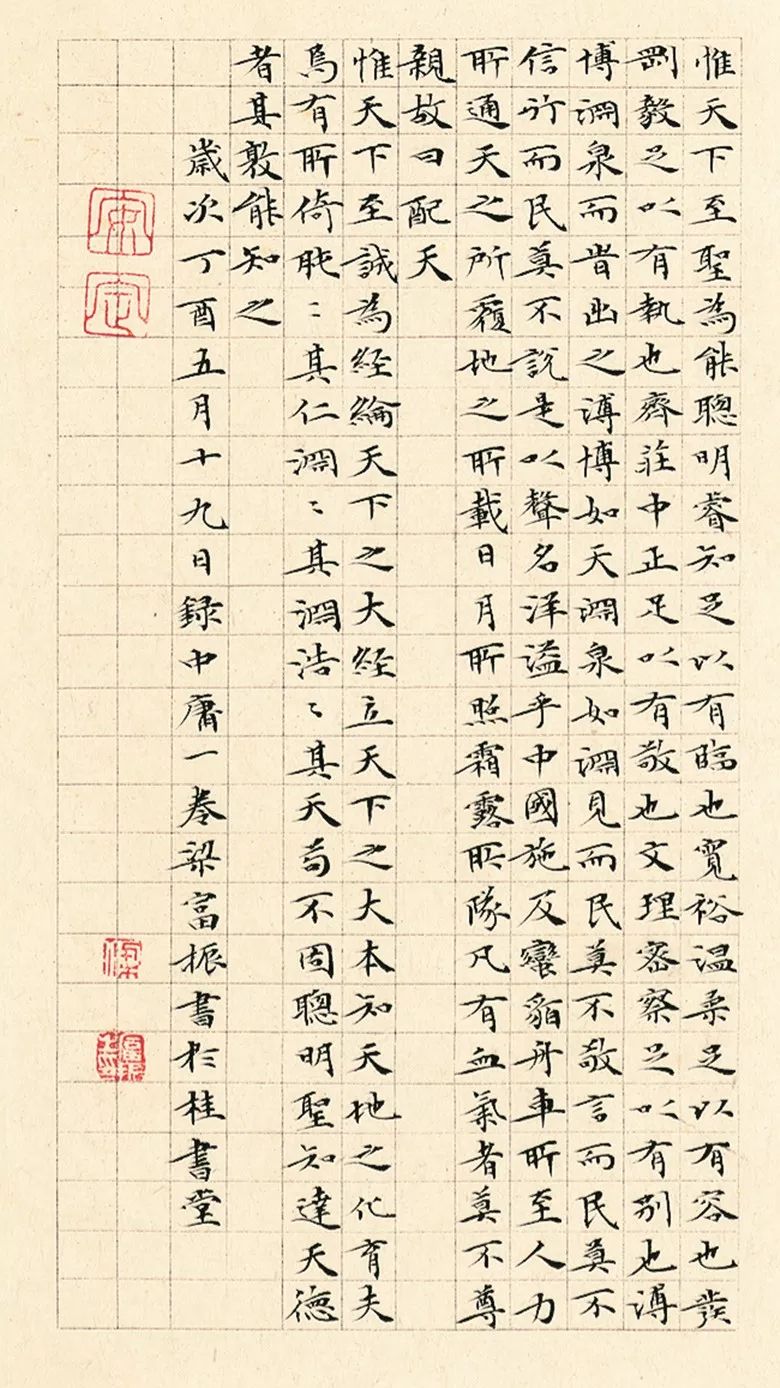 惟天下至聖為能聰明睿知足以有臨也寬裕温柔足以有容也發
剛毅足以有執也齊莊中正足以有敬也文理密察足以有別也溥
博淵泉而旹出之溥博如天淵泉如淵見而民莫不敬言而民莫不
信行而民莫不說是以聲名洋溢乎中國施及蠻貊舟車所至人力
所通天之所覆地之所載日月所照霜露所隊凡有血氣者莫不尊
親故曰配天
惟天下至誠為經綸天下之大經立天下之大本知天地之化育夫
焉有所倚肫〻其仁淵〻其淵浩〻其天苟不固聰明聖知達天德
者其孰能知之
歲次丁酉五月十九日録中庸一卷梁富振書於桂書堂